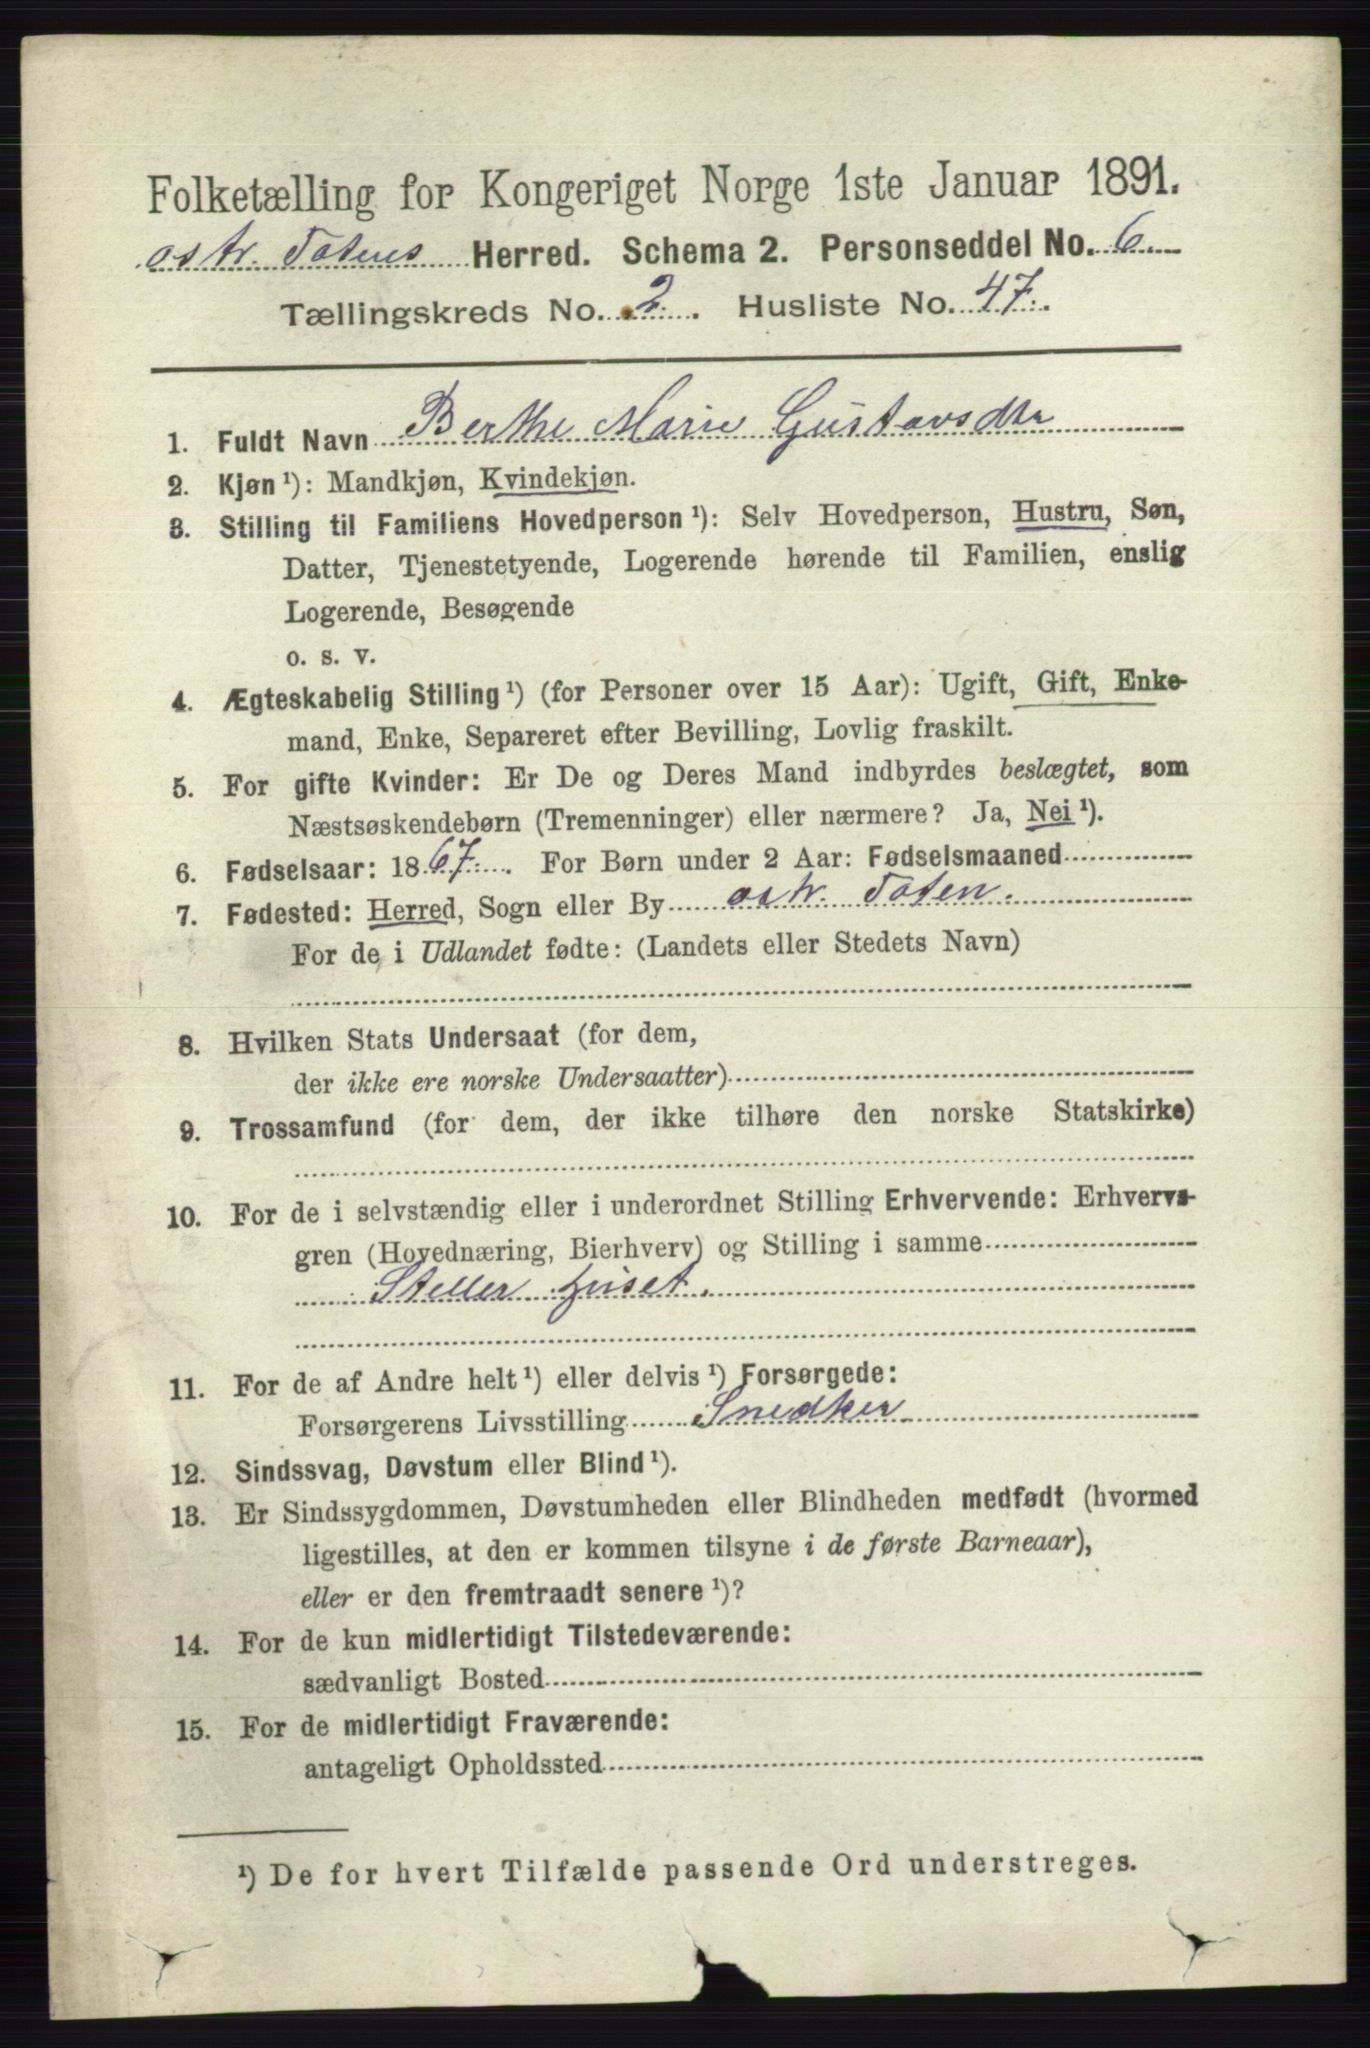 Folketælling for Kongeriget Norge 1ste Januar 1891.
østr. Totens Herred. Schema 2. Personseddel No. 6.
Tællingskreds No. 2. Husliste No. 47.
1. Fuldt Navn Berthe Marie Gustavsdtr
2. Kjøn ¹): Mandkjøn, Kvindekjøn.
3. Stilling til Familiens Hovedperson ¹): Selv Hovedperson, Hustru, Søn,
Datter, Tjenestetyende, Logerende hørende til Familien, enslig
Logerende, Besøgende
o. s. v.
4. Ægteskabelig Stilling ¹) (for Personer over 15 Aar): Ugift, Gift, Enke-
mand, Enke, Separeret efter Bevilling, Lovlig fraskilt.
5. For gifte Kvinder: Er De og Deres Mand indbyrdes beslægtet, som
Næstsøskendebørn (Tremenninger) eller nærmere? Ja, Nei ¹).
6. Fødselsaar: 1867. For Børn under 2 Aar: Fødselsmaaned
7. Fødested: Herred, Sogn eller By østr. Toten.
For de i Udlandet fødte: (Landets eller Stedets Navn)
8. Hvilken Stats Undersaat (for dem,
der ikke ere norske Undersaatter)
9. Trossamfund (for dem, der ikke tilhøre den norske Statskirke)
10. For de i selvstændig eller i underordnet Stilling Erhvervende: Erhvervs-
gren (Hovednæring, Bierhverv) og Stilling i samme
Steller huset.
11. For de af Andre helt ¹) eller delvis ¹) Forsørgede:
Forsørgerens Livsstilling Snedker
12. Sindssvag, Døvstum eller Blind ¹).
13. Er Sindssygdommen, Døvstumheden eller Blindheden medfødt (hvormed
ligestilles, at den er kommen tilsyne i de første Barneaar),
eller er den fremtraadt senere ¹)?
14. For de kun midlertidigt Tilstedeværende:
sædvanligt Bosted
15. For de midlertidigt Fraværende:
antageligt Opholdssted
¹) De for hvert Tilfælde passende Ord understreges.